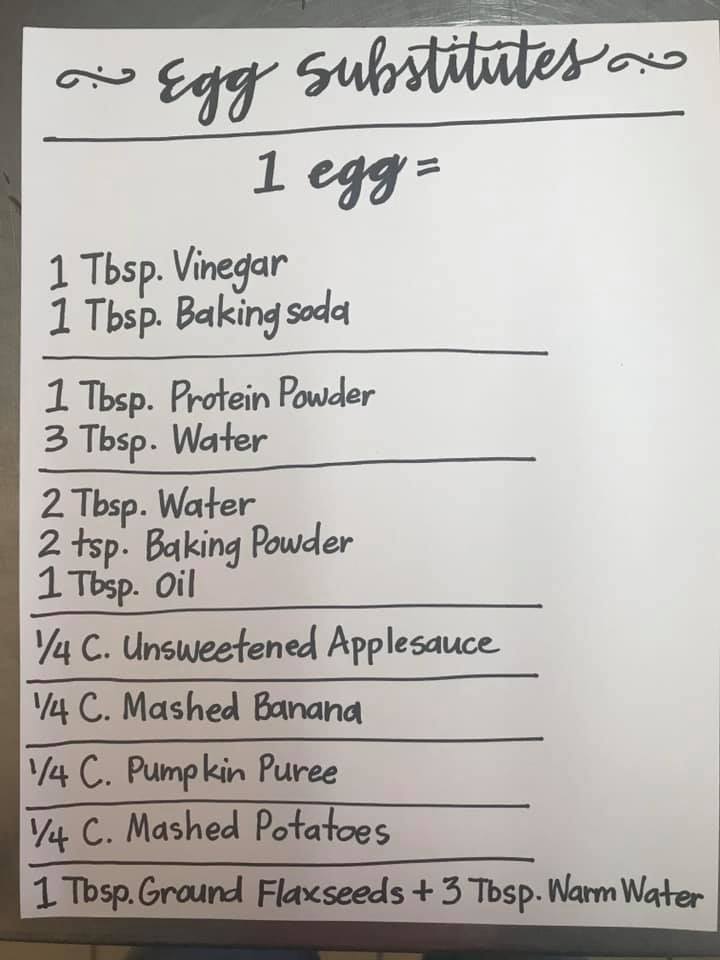 Egg Substitutes
1 egg =
1 Tbsp. Vinegar
1 Tbsp. Baking soda
1 Tbsp. Protein Powder
3 Tbsp. Water
2 Tbsp. Water
2 tsp. Baking Powder
1 Tbsp. Oil
1/4 C. Unsweetened Applesauce
1/4 C. Mashed Banana
1/4 C. Pumpkin Puree
1/4 C. Mashed Potatoes
1 Tbsp. Ground Flaxseeds + 3 Tbsp. Warm Water